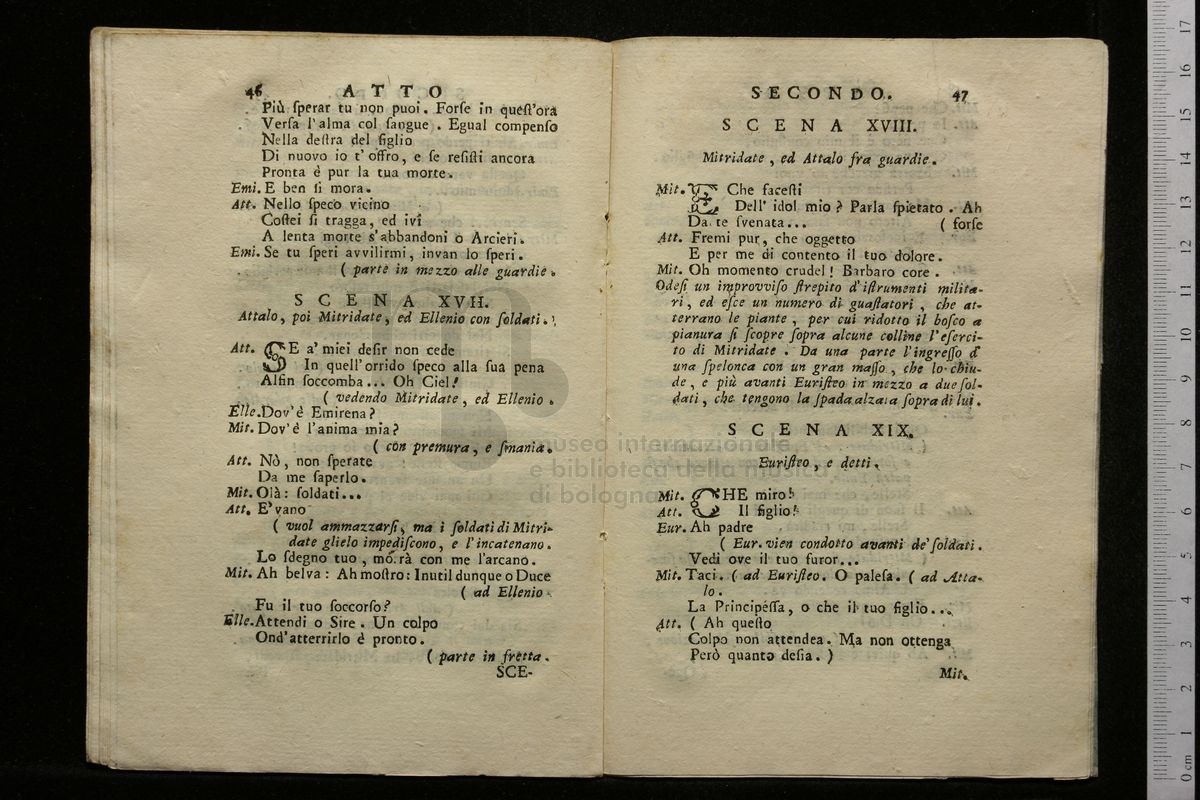 46 ATTO
Più ſperar tu non puoi. Forſe in queſt'ora
Verſa l'alma col ſangue. Egual compenſo
Nella deſtra del figlio
Di nuovo io t'offro, e ſe reſiſti ancora
Pronta è pur la tua morte.
Emi. E ben ſi mora.
Att. Nello ſpeco vicino
Coſtei ſi tragga, ed ivi
A lenta morte s'abbandoni o Arcieri.
Emi. Se tu ſperi avvilirmi, invan lo ſperi.
( parte in mezzo alle guardie.
SCENA XVII.
Attalo, poi Mitridate, ed Ellenio con ſoldati.
Att. SE a' miei deſir non cede
In quell'orrido ſpeco alla ſua pena
Alfin ſoccomba... Oh Ciel!
( vedendo Mitridate, ed Ellenio.
Elle. Dov'è Emirena?
Mit. Dov'è l'anima mia?
( con premura, e ſmania.
Att. Nò, non ſperate
Da me ſaperlo.
Mit. Olà: ſoldati...
Att. E' vano
( vuol ammazzarſi, ma i ſoldati di Mitri-
date glielo impediſcono, e l'incatenano.
Lo ſdegno tuo, morrà con me l'arcano.
Mit. Ah belva: Ah moſtro: Inutil dunque o Duce
( ad Ellenio
Fu il tuo ſoccorſo?
Elle. Attendi o Sire. Un colpo
Ond'atterrirlo è pronto.
( parte in fretta.
SCE-
SECONDO. 47
SCENA XVIII.
Mitridate, ed Attalo fra guardie.
Mit. E Che faceſti
Dell' idol mio? Parla ſpietato. Ah
Da te ſvenata... ( forſe
Att. Fremi pur, che oggetto
E per me di contento il tuo dolore.
Mit. Oh momento crudel! Barbaro core.
Odeſi un improvviſo ſtrepito d'iſtrumenti milita-
ri, ed eſce un numero di guaſtatori, che at-
terrano le piante, per cui ridotto il boſco a
pianura ſi ſcopre ſopra alcune colline l'eſerci-
to di Mitridate. Da una parte l'ingreſſo d'
una ſpelonca con un gran maſſo, che lo chiu-
de, e più avanti Euriſteo in mezzo a due ſol-
dati, che tengono la ſpada alzata ſopra di lui.
SCENA XIX.
Euriſteo, e detti.
Mit. CHE miro!
Att. Il figlio!
Eur. Ah padre
( Eur. vien condotto avanti de' ſoldati.
Vedi ove il tuo furor...
Mit. Taci. ( ad Euriſteo. O paleſa. ( ad Atta-
lo.
La Principeſſa, o che il tuo figlio...
Att. ( Ah queſto
Colpo non attendea. Ma non ottenga
Però quanto deſia. )
Mit.
museo internazionale
e biblioteca della musica
di bologna
0 cm 1 2 3 4 5 6 7 8 9 10 11 12 13 14 15 16 17